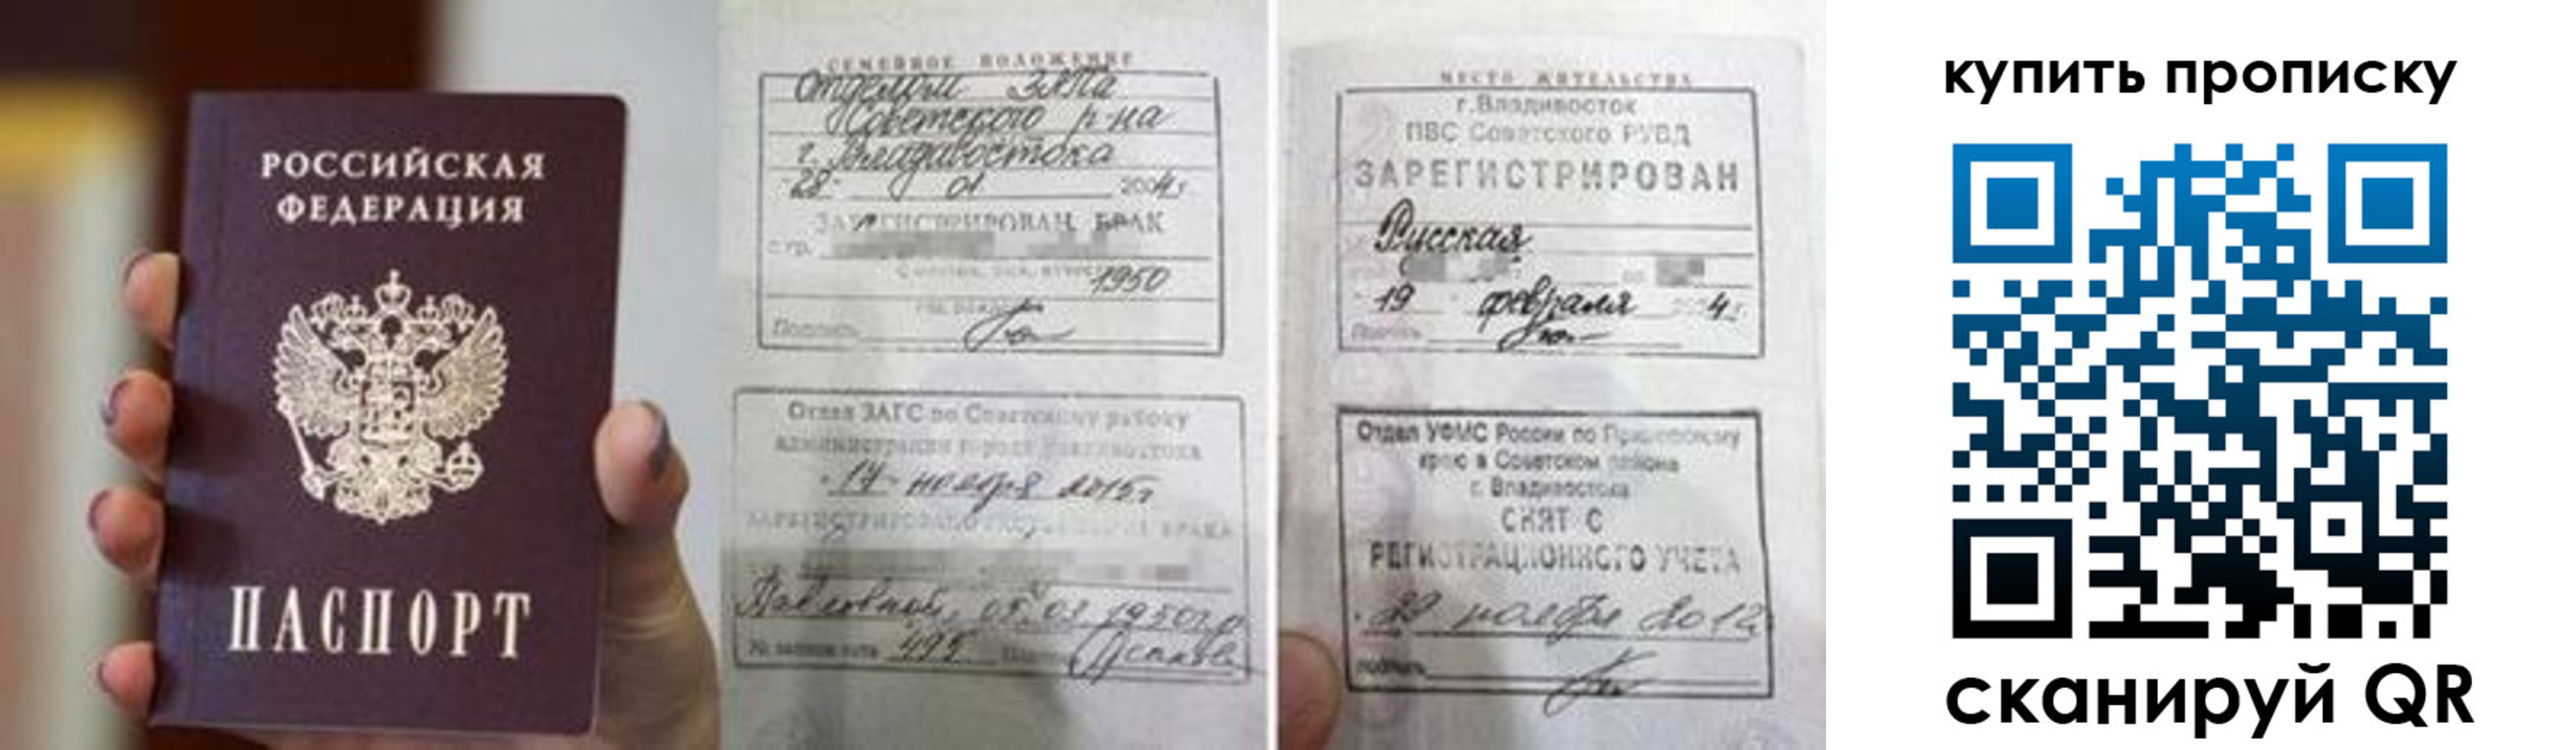 РОССИЙСКАЯ
ФЕДЕРАЦИЯ
ПАСПОРТ
СЕМЕЙНОЕ ПОЛОЖЕНИЕ
Отделом ЗАГСа
Советского р-на
г. Владивостока
"28" 01 2004г.
ЗАРЕГИСТРИРОВАН БРАК
с гр.
1950
Подпись
Отдел ЗАГС по Советскому району
администрации города Владивостока
"17" ноября 2015г
Павловной, 05.03.1950г.р
№ записи акта 495
МЕСТО ЖИТЕЛЬСТВА
г.Владивосток
ПВС Советского РУВД
ЗАРЕГИСТРИРОВАН
Русская
"19" февраля 4г.
Подпись
Отдел УФМС России по Приморскому
краю в Советском районе
г. Владивостока
СНЯТ С
РЕГИСТРАЦИОННОГО УЧЕТА
ноября 2012
подпись
купить прописку
сканируй QR